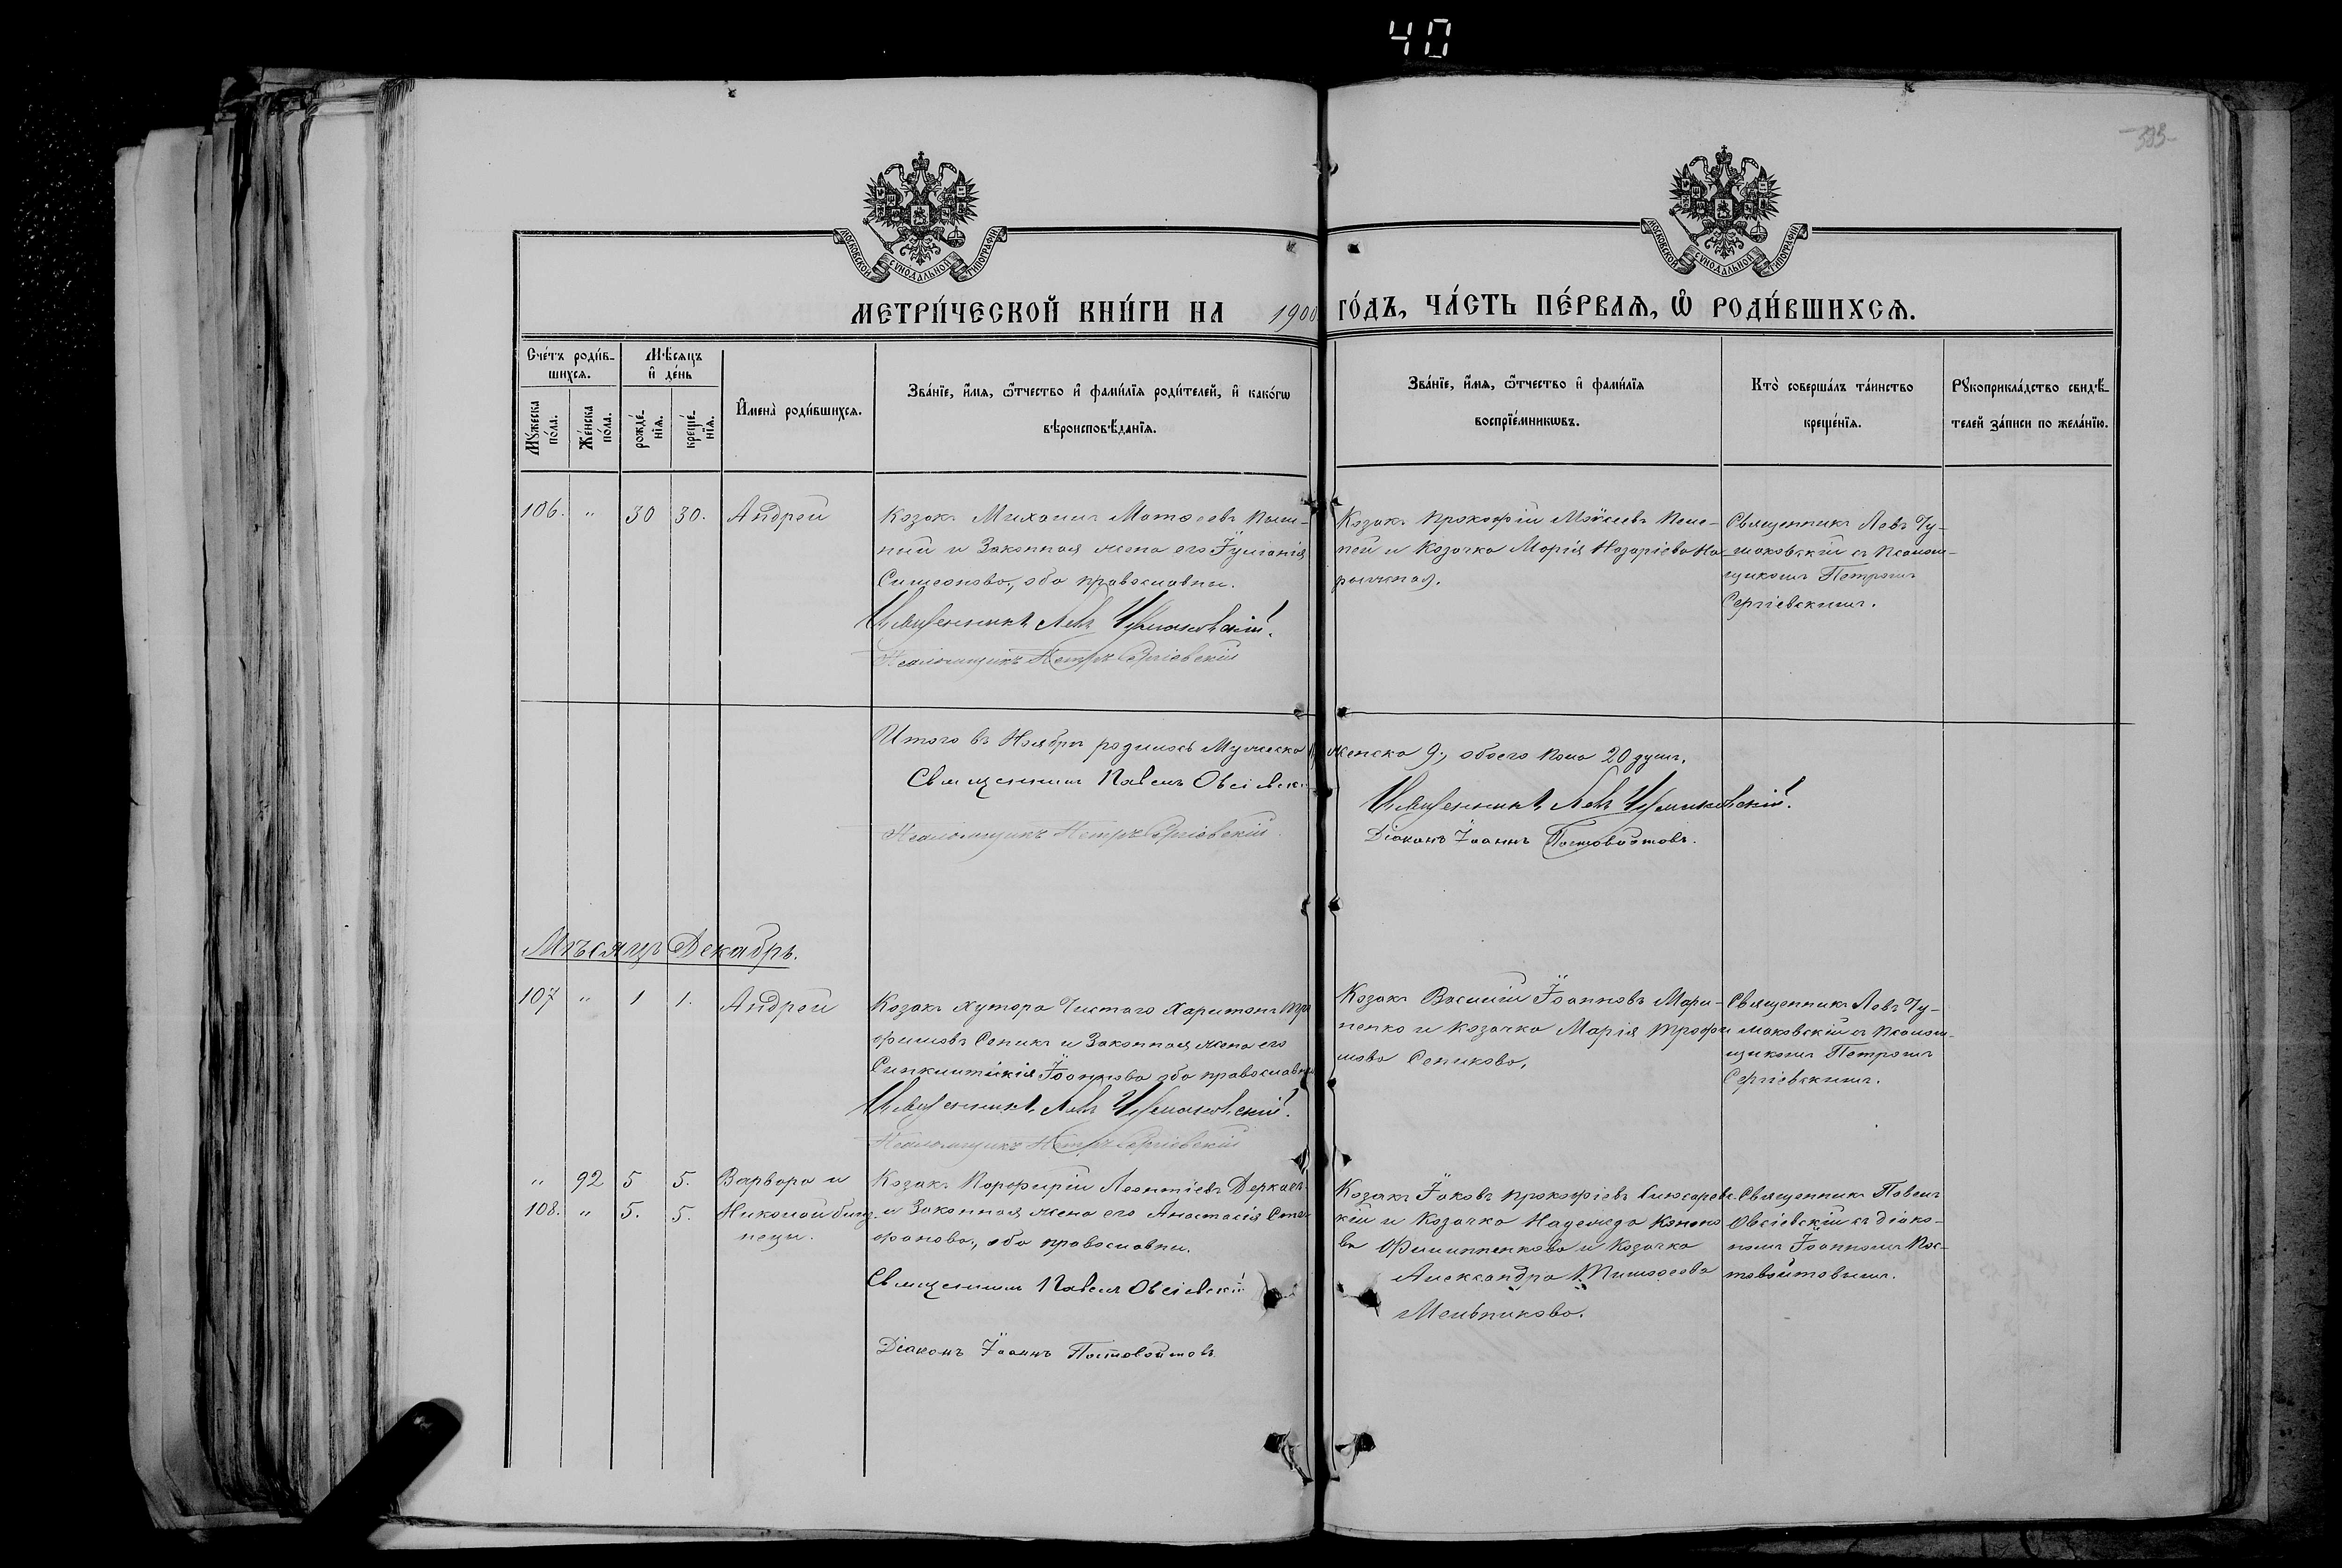 40
393
МОСКОВСКОЙ СѴНОДАЛЬНОЙ ТИПОГРАФІИ
МОСКОВСКОЙ СѴНОДАЛЬНОЙ ТИПОГРАФІИ
МЕТРИ́ЧЕСКОЙ КНИ́ГИ НА 1900 ГО́ДЪ, ЧА́СТЬ ПЕ́РВАѦ, Ѿ РОДИ́ВШИХСѦ.
Сче́тъ роди́в-
шихсѧ.
Мѣ́сѧцъ
и҆ де́нь
Мꙋжеска по́ла.
Же́нска по́ла.
рожде́-
нїѧ.
креще́-
нїѧ.
И҆мена̀ роди́вшихсѧ.
Зва́нїе, и҆́мѧ, ѻ҆́тчество и҆ фами́лїѧ роди́телей, и҆ како́гѡ
вѣроисповѣ́данїѧ.
Зва́нїе, и҆́мѧ, ѻ҆́тчество и҆ фами́лїѧ
воспрїе́мникѡвъ.
Кто̀ соверша́лъ та́инство
креще́нїѧ.
Рꙋкоприкла́дство свидѣ́-
телей за́писи по жела́нїю.
106. " 30 30. Андрей
Козакъ Михаилъ Матѳеевъ
и Законная жена его Іуліанія
Симеонова, оба православные.
Священникъ Левъ Чумаковскій.
Псаломщикъ Петръ Сергіевскій
Козакъ Прокофій Мойсеевъ
и Козачка Марія Назаріева На-
рыжная.
Священникъ Левъ Чу-
маковскій съ Псалом-
щикомъ Петромъ
Сергіевскимъ.
Итого въ Ноябрѣ родилось Мужеска 11, женска 9, обоего пола 20 душъ.
Священникъ Павелъ Овсіевскі
Священникъ Левъ Чумаковскій.
Псаломщикъ Петръ Сергіевскій.
Діаконъ Іоаннъ Постовойтовъ.
Мѣсяцъ Декабрь.
107 " 1 1. Андрей
Козакъ хутора Чистаго Харитонъ Тро
фимовъ Сеникъ и Законная жена его
Синклитикія Іоаннова оба православны
Священникъ Левъ Чумаковскій.
Псаломщикъ Петръ Сергіевскій
Козакъ Василій Іоанновъ Мари-
ненко и козачка Марія Трофи
мова Сеникова.
Священникъ Левъ Чу-
маковскій съ Псалом-
щикомъ Петромъ
Сергіевскимъ.
" 92 5 5. Варвара и
108. " 5. 5. Николай близ-
нецы.
Козакъ Порфирій Леонтіевъ Деркач
и Законная жена его Анастасія Сте-
фанова, оба православны.
Священникъ Павелъ Овсіевскій
Діаконъ Іоаннъ Постовойтовъ
Козакъ Іаковъ Прокофіевъ Слюсаревс
кій и Козачка Надежда Конено
ва Филиппенкова и Козачка
Александра Тимофеева
Мельникова.
Священникъ Павелъ
Овсіевскій съ діако-
номъ Іоанномъ Пос-
товойтовымъ.